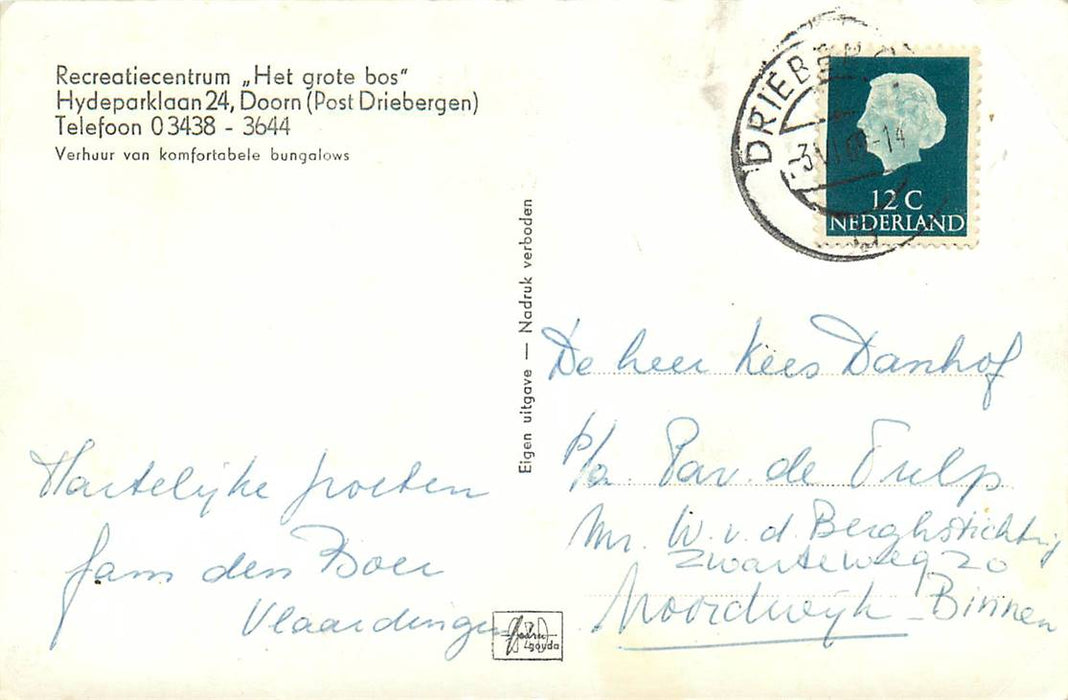 Recreatiecentrum „Het grote bos"
Hydeparklaan 24, Doorn (Post Driebergen)
Telefoon 03438 - 3644
Verhuur van komfortabele bungalows
Hartelijke groeten
Jam den Boer
Vlaardingen
Eigen uitgave — Nadruk verboden
12 C
NEDERLAND
De heer Kees Danhof
p/a Pav. de Tulp
Mr. W. v. d. Berghstichting
Zwarteweg 20
Noordwijk - Binnen